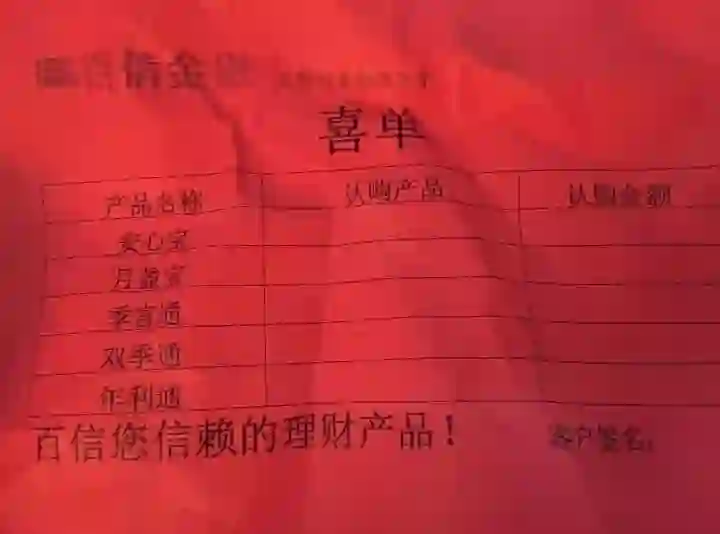 信金
喜单
产品名称 认购产品 认购金额
安心宝
月盈宝
季喜通
双季通
年利通
百信您信赖的理财产品！ 客户签名：